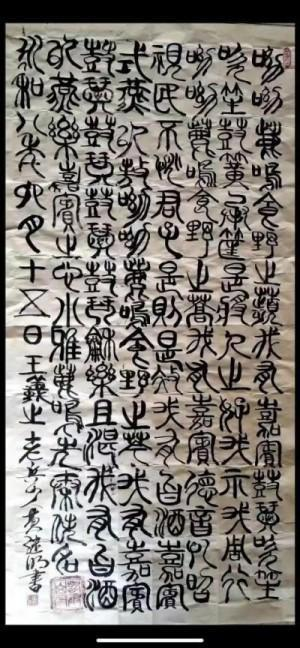 呦呦鹿鳴食野之蘋我有嘉賓鼓瑟吹笙
吹笙鼓簧承筐是將人之好我示我周行
呦呦鹿鳴食野之蒿我有嘉賓德音孔昭
視民不恌君子是則是傚我有旨酒嘉賓
式燕以敖呦呦鹿鳴食野之芩我有嘉賓
鼓瑟鼓琴鼓瑟鼓琴龢樂且湛我有旨酒
以燕樂嘉賓之心小雅鹿鳴
永和八年卯月十五日王羲之 書